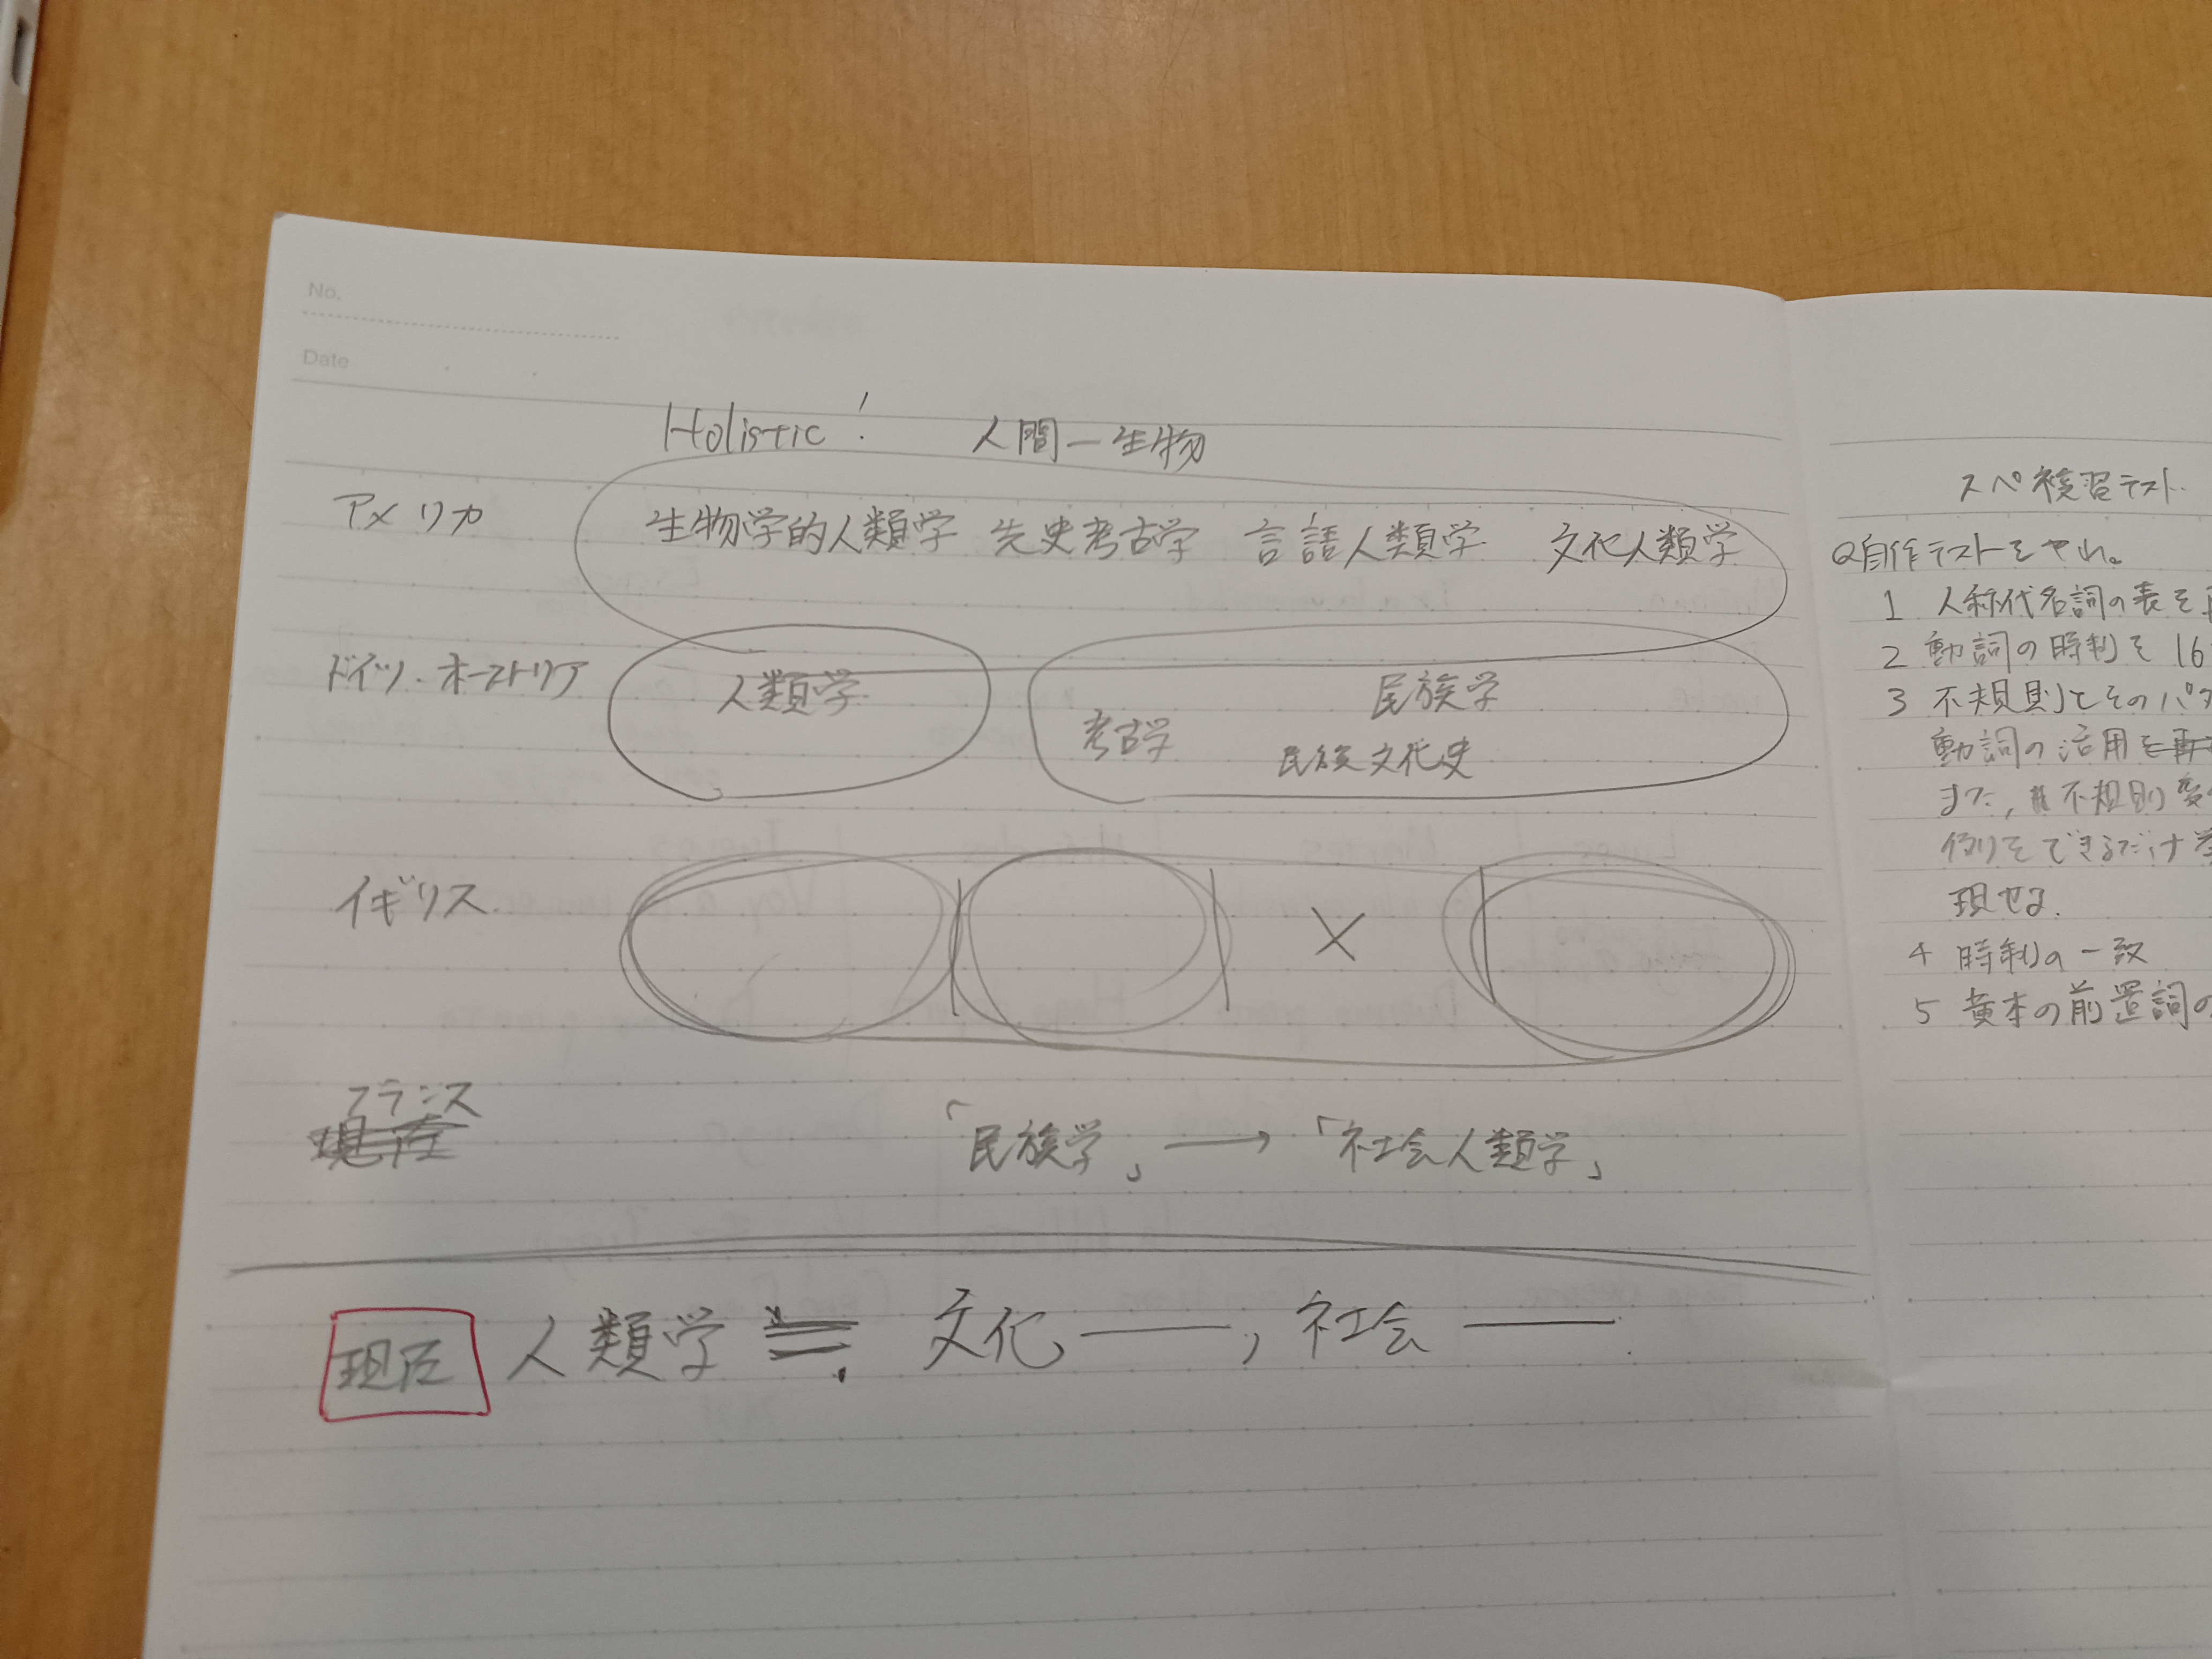 No.
Date
Holistic! 人間―生物
アメリカ 生物学的人類学 先史考古学 言語人類学 文化人類学
ドイツ・オーストリア 人類学 民族学
考古学 民族文化史
イギリス ×
フランス
現在
「民族学」→「社会人類学」
現在 人類学 ≒ 文化――, 社会――
スペ補習テスト
Q自作テストをやれ。
1 人称代名詞の表を
2 動詞の時制を16
3 不規則とそのパタ
動詞の活用を
また, 不規則変
例をできるだけ挙
現せよ.
4 時制の一致
5 黄本の前置詞の